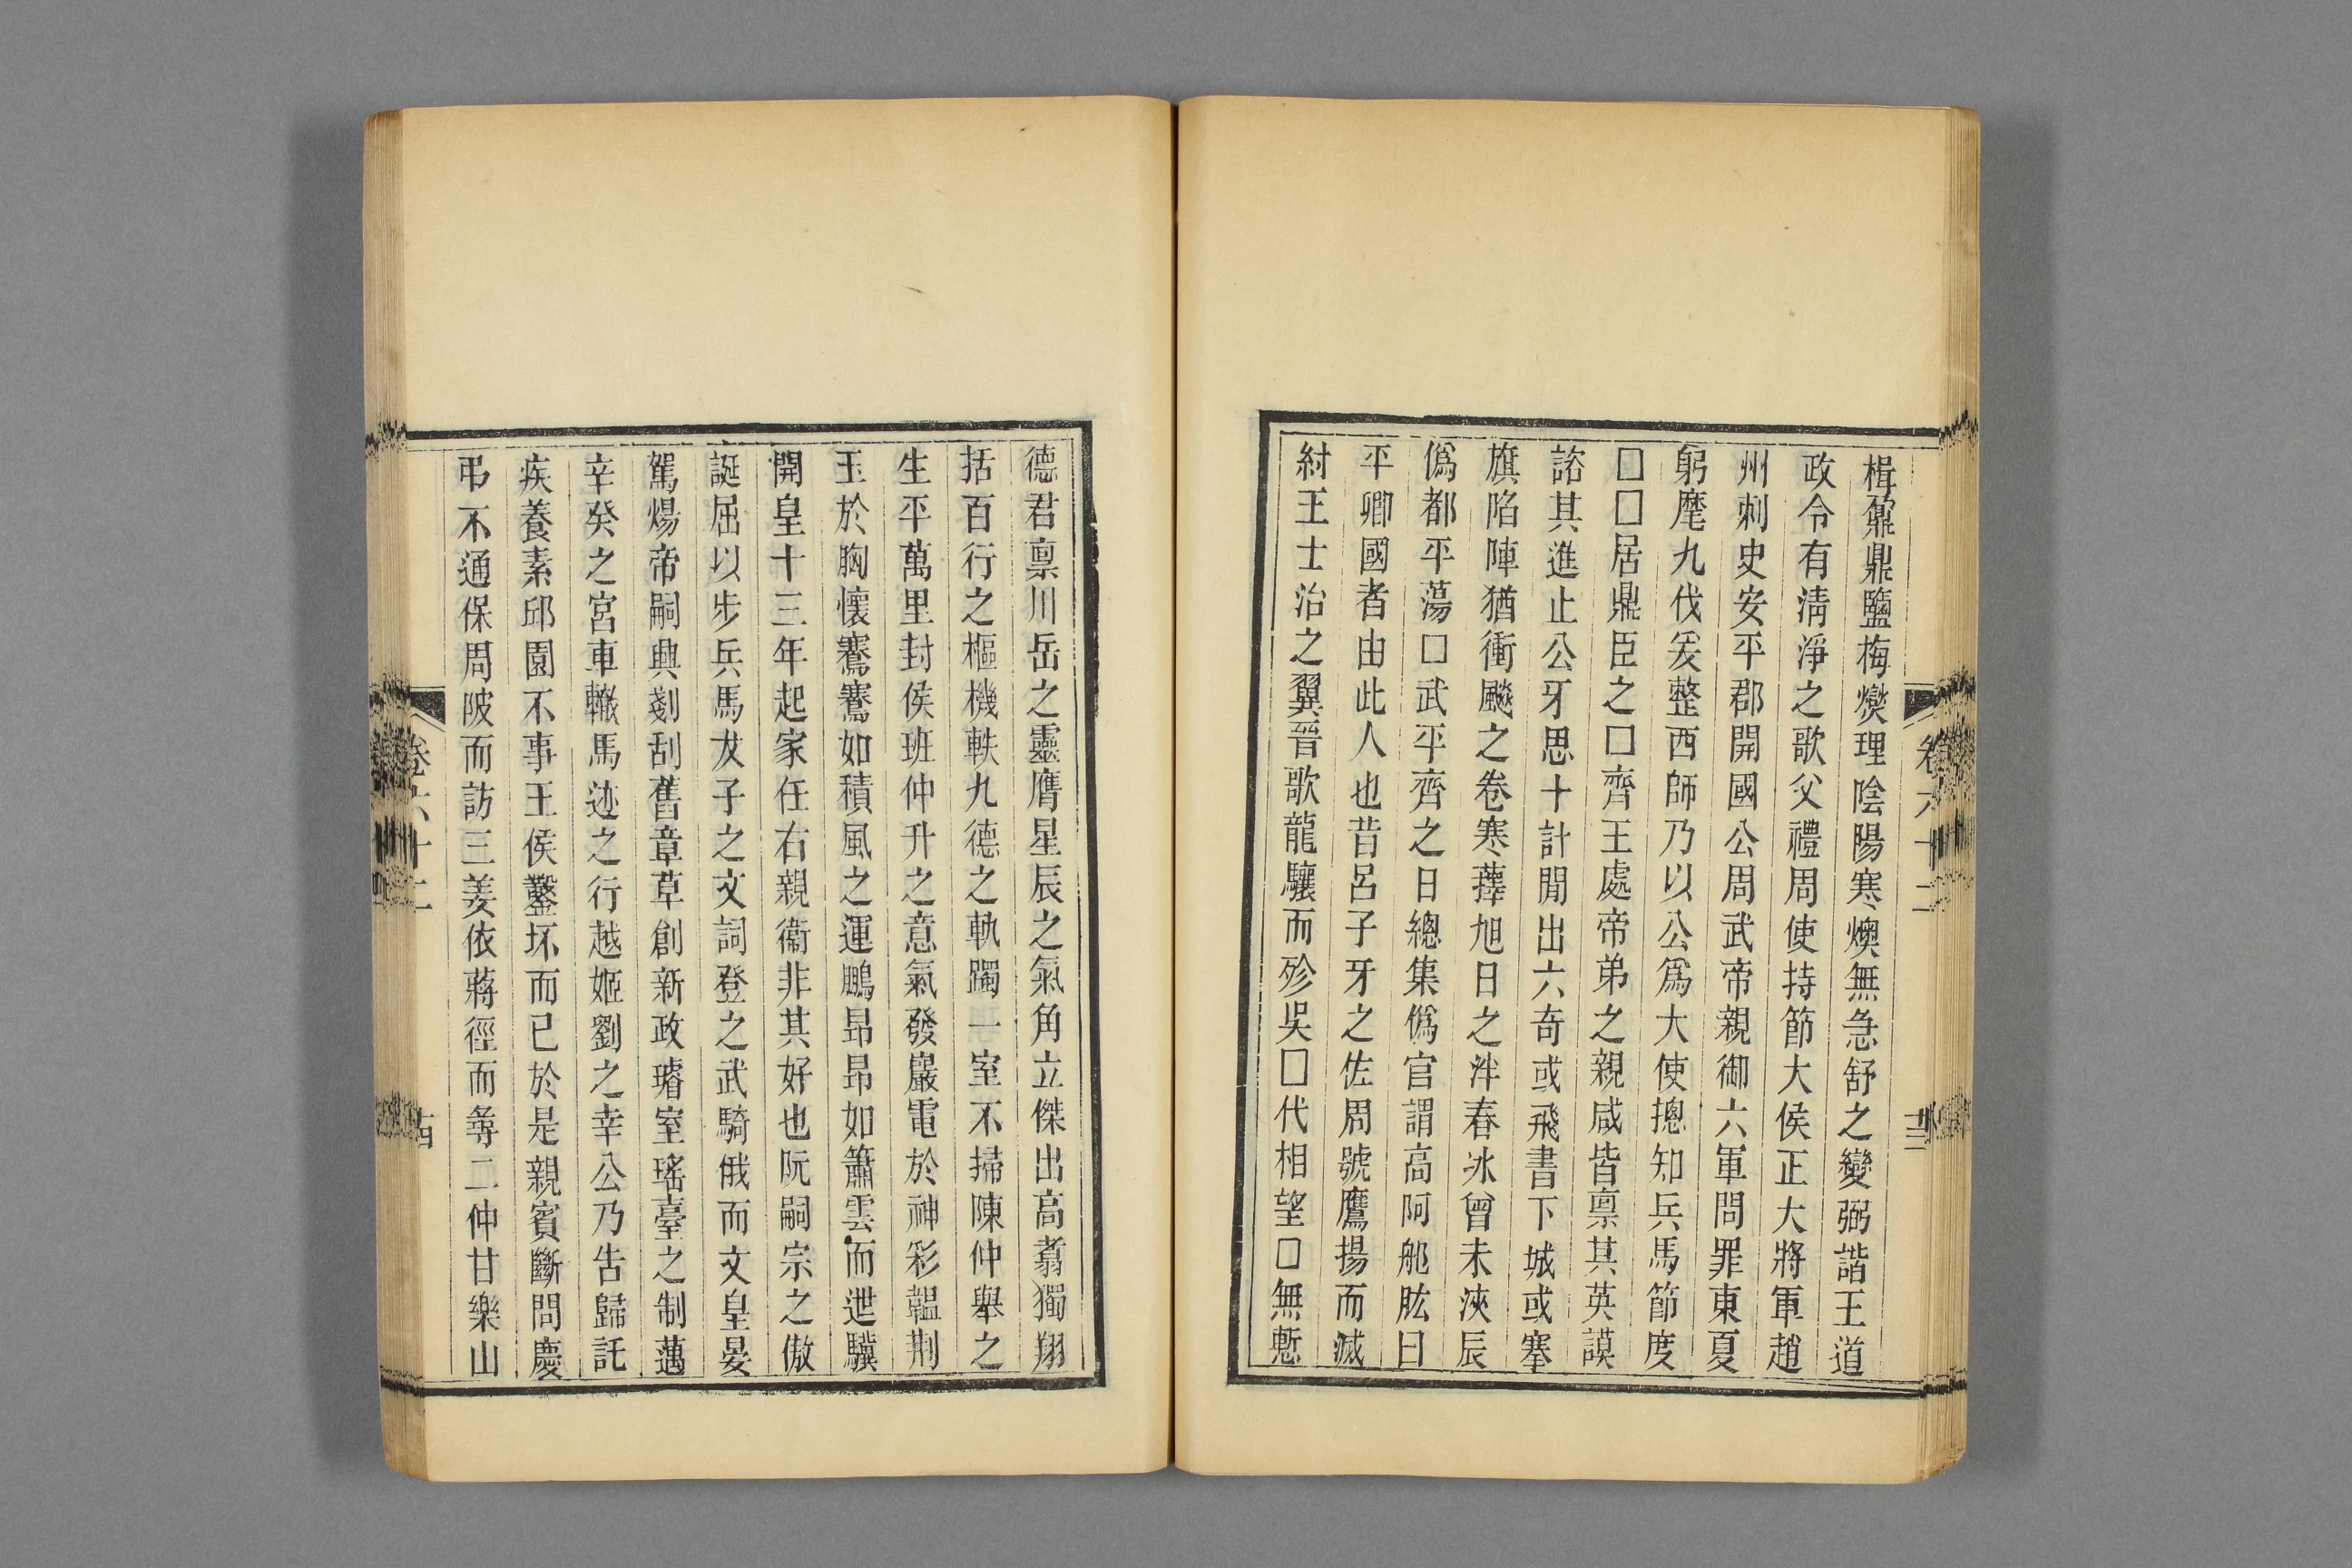 楫鼐鼎鹽梅爕理陰陽寒燠無急舒之變弼諧王道
政令有淸淨之歌父禮周使持節大侯正大將軍趙
州刺史安平郡開國公周武帝親御六軍問罪東夏
躬麾九伐爰整西師乃以公爲大使摠知兵馬節度
□□居鼎臣之□齊王處帝弟之親咸皆禀其英謨
諮其進止公牙思十計閒出六奇或飛書下城或搴
旗陷陣猶衝飈之卷寒蘀旭日之泮春冰曾未浹辰
僞都平蕩□武平齊之日總集僞官謂高阿那肱曰
平卿國者由此人也昔呂子牙之佐周號鷹揚而滅
紂王士治之翼晉歌龍驤而殄吳□代相望□無慙
德君禀川岳之靈膺星辰之氣角立傑出高翥獨翔
括百行之樞機軼九德之軌躅一室不掃陳仲舉之
生平萬里封侯班仲升之意氣發巖電於神彩韞荆
玉於胸懷騫騫如積風之運鵬昂昂如簫雲而迣驥
開皇十三年起家任右親衞非其好也阮嗣宗之傲
誕屈以步兵馬犮子之文詞登之武騎俄而文皇晏
駕煬帝嗣興剗刮舊章草創新政璿室瑤臺之制邁
辛癸之宮車轍馬迹之行越姬劉之幸公乃告歸託
疾養素邱園不事王侯鑿坏而已於是親賓斷問慶
弔不通保周陂而訪三姜依蔣徑而尋二仲甘樂山
卷六十二
十三
卷六十二
十四